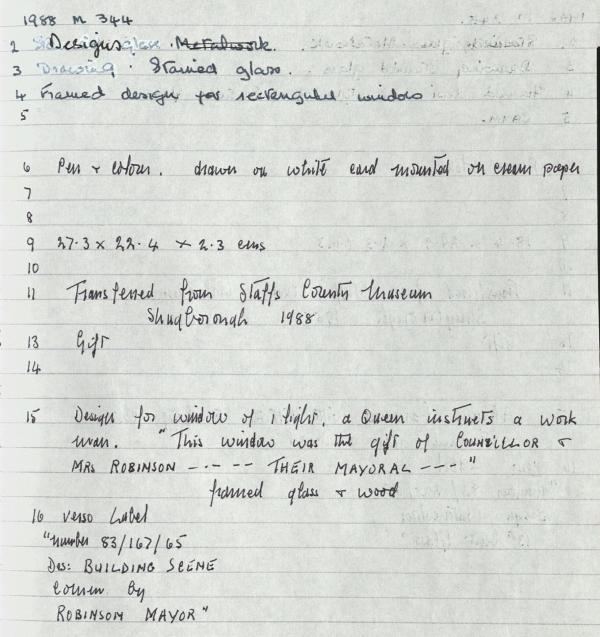 1988 M 344
2 Designs glass. Metalwork.
3 Drawing. Stained glass.
4 Framed design for rectangular window
5
6 Pen & colour. drawn on white card mounted on cream paper
7
8
9 27.3 x 22.4 x 2.3 cms
10
11 Transferred from Staffs County Museum
Shugborough 1988
13 Gift
14
15 Design for window of 1 light, a Queen instructs a work
man. "This window was the gift of COUNCILLOR &
MRS ROBINSON -.- -- THEIR MAYORAL ----"
framed glass & wood
16 verso label
"number 83/167/65
Des: BUILDING SCENE
Comm by
ROBINSON MAYOR"